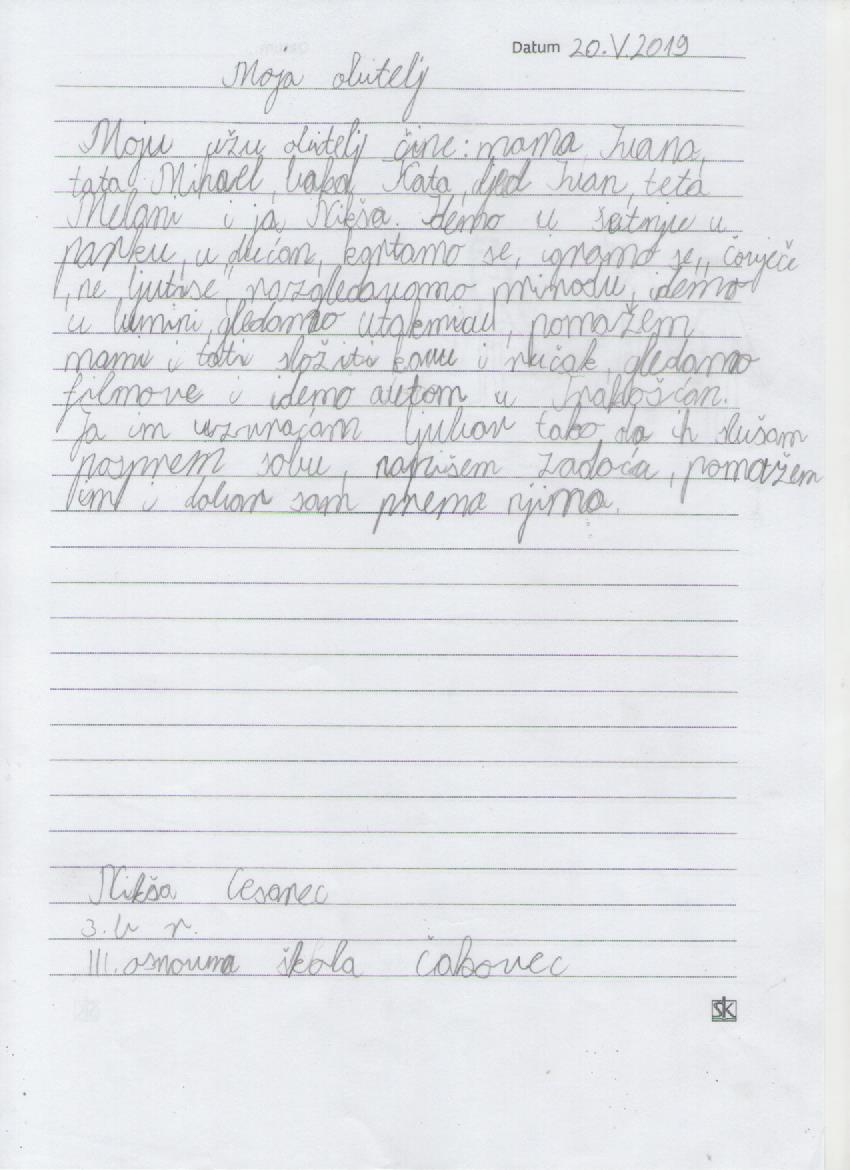 Datum 20.V.2019
Moja obitelj
Moju užu obitelj čine: mama Ivana,
tata Mihael, baka Kata, djed Ivan, teta
Melani i ja, Nikša. Idemo u šetnju u
parku, u dućan, kartamo se, igramo se „čovječe
ne ljutise" razgledavamo prirodu, idemo
u gledamo utakmicu, pomažem
mami i tati složiti kavu i ručak, gledamo
filmove i idemo autom u Trakošćan.
Ja im uzvraćam ljubav tako da ih slušam
pospremem sobu, napišem zadaća, pomažem
im i dobar sam prema njima.
Nikša Cesarec
3. b r.
III. osnovna škola Čakovec
sk